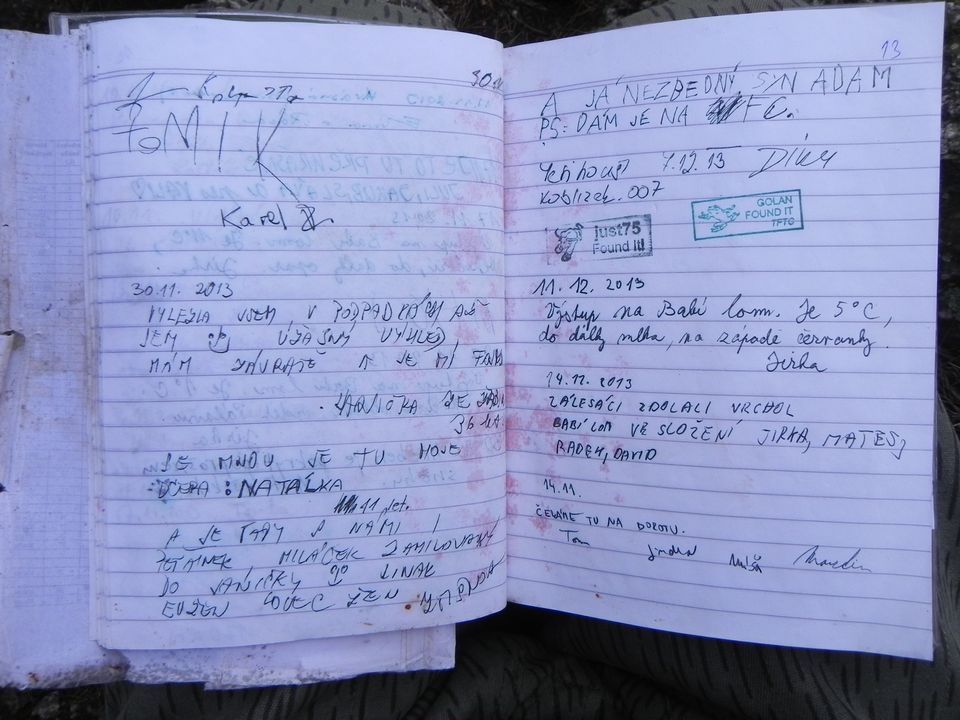 30.11
TOMIK
Karel
30.11. 2013
VYLEZLA JSEM, V PODPADKÁCH AŽ
JEM ÚŽASNÝ VÝHLED
MÁM ZÁVRATĚ A JE MI
JARUŠKA ZE
36 let.
SE MNOU JE TU MOJE
DCERA: NATÁLKA
11 let.
A JE TADY S NAMI I
MILÁČEK ZAMILOVANÝ
DO JANIČKY JINAK
EVŽEN LOVEC ŽEN
13
A JÁ NEZBEDNÝ SYN ADAM
PS: DÁM JE NA FC.
7.12.13 Díky
Koblizek.007
just75
Found It!
GOLAN
FOUND IT
TFTC
11.12.2013
Výstup na Babí lom. Je 5°C,
do dálky mlha, na západě červánky.
Jirka
14.12.2013
ZÁLESÁCI ZDOLALI VRCHOL
BABÍ LOM VE SLOŽENÍ JIRKA, MATĚJ,
RADEK, DAVID
14.11.
ČEKÁME TU NA DOROTU.
Tom Jindra Míša